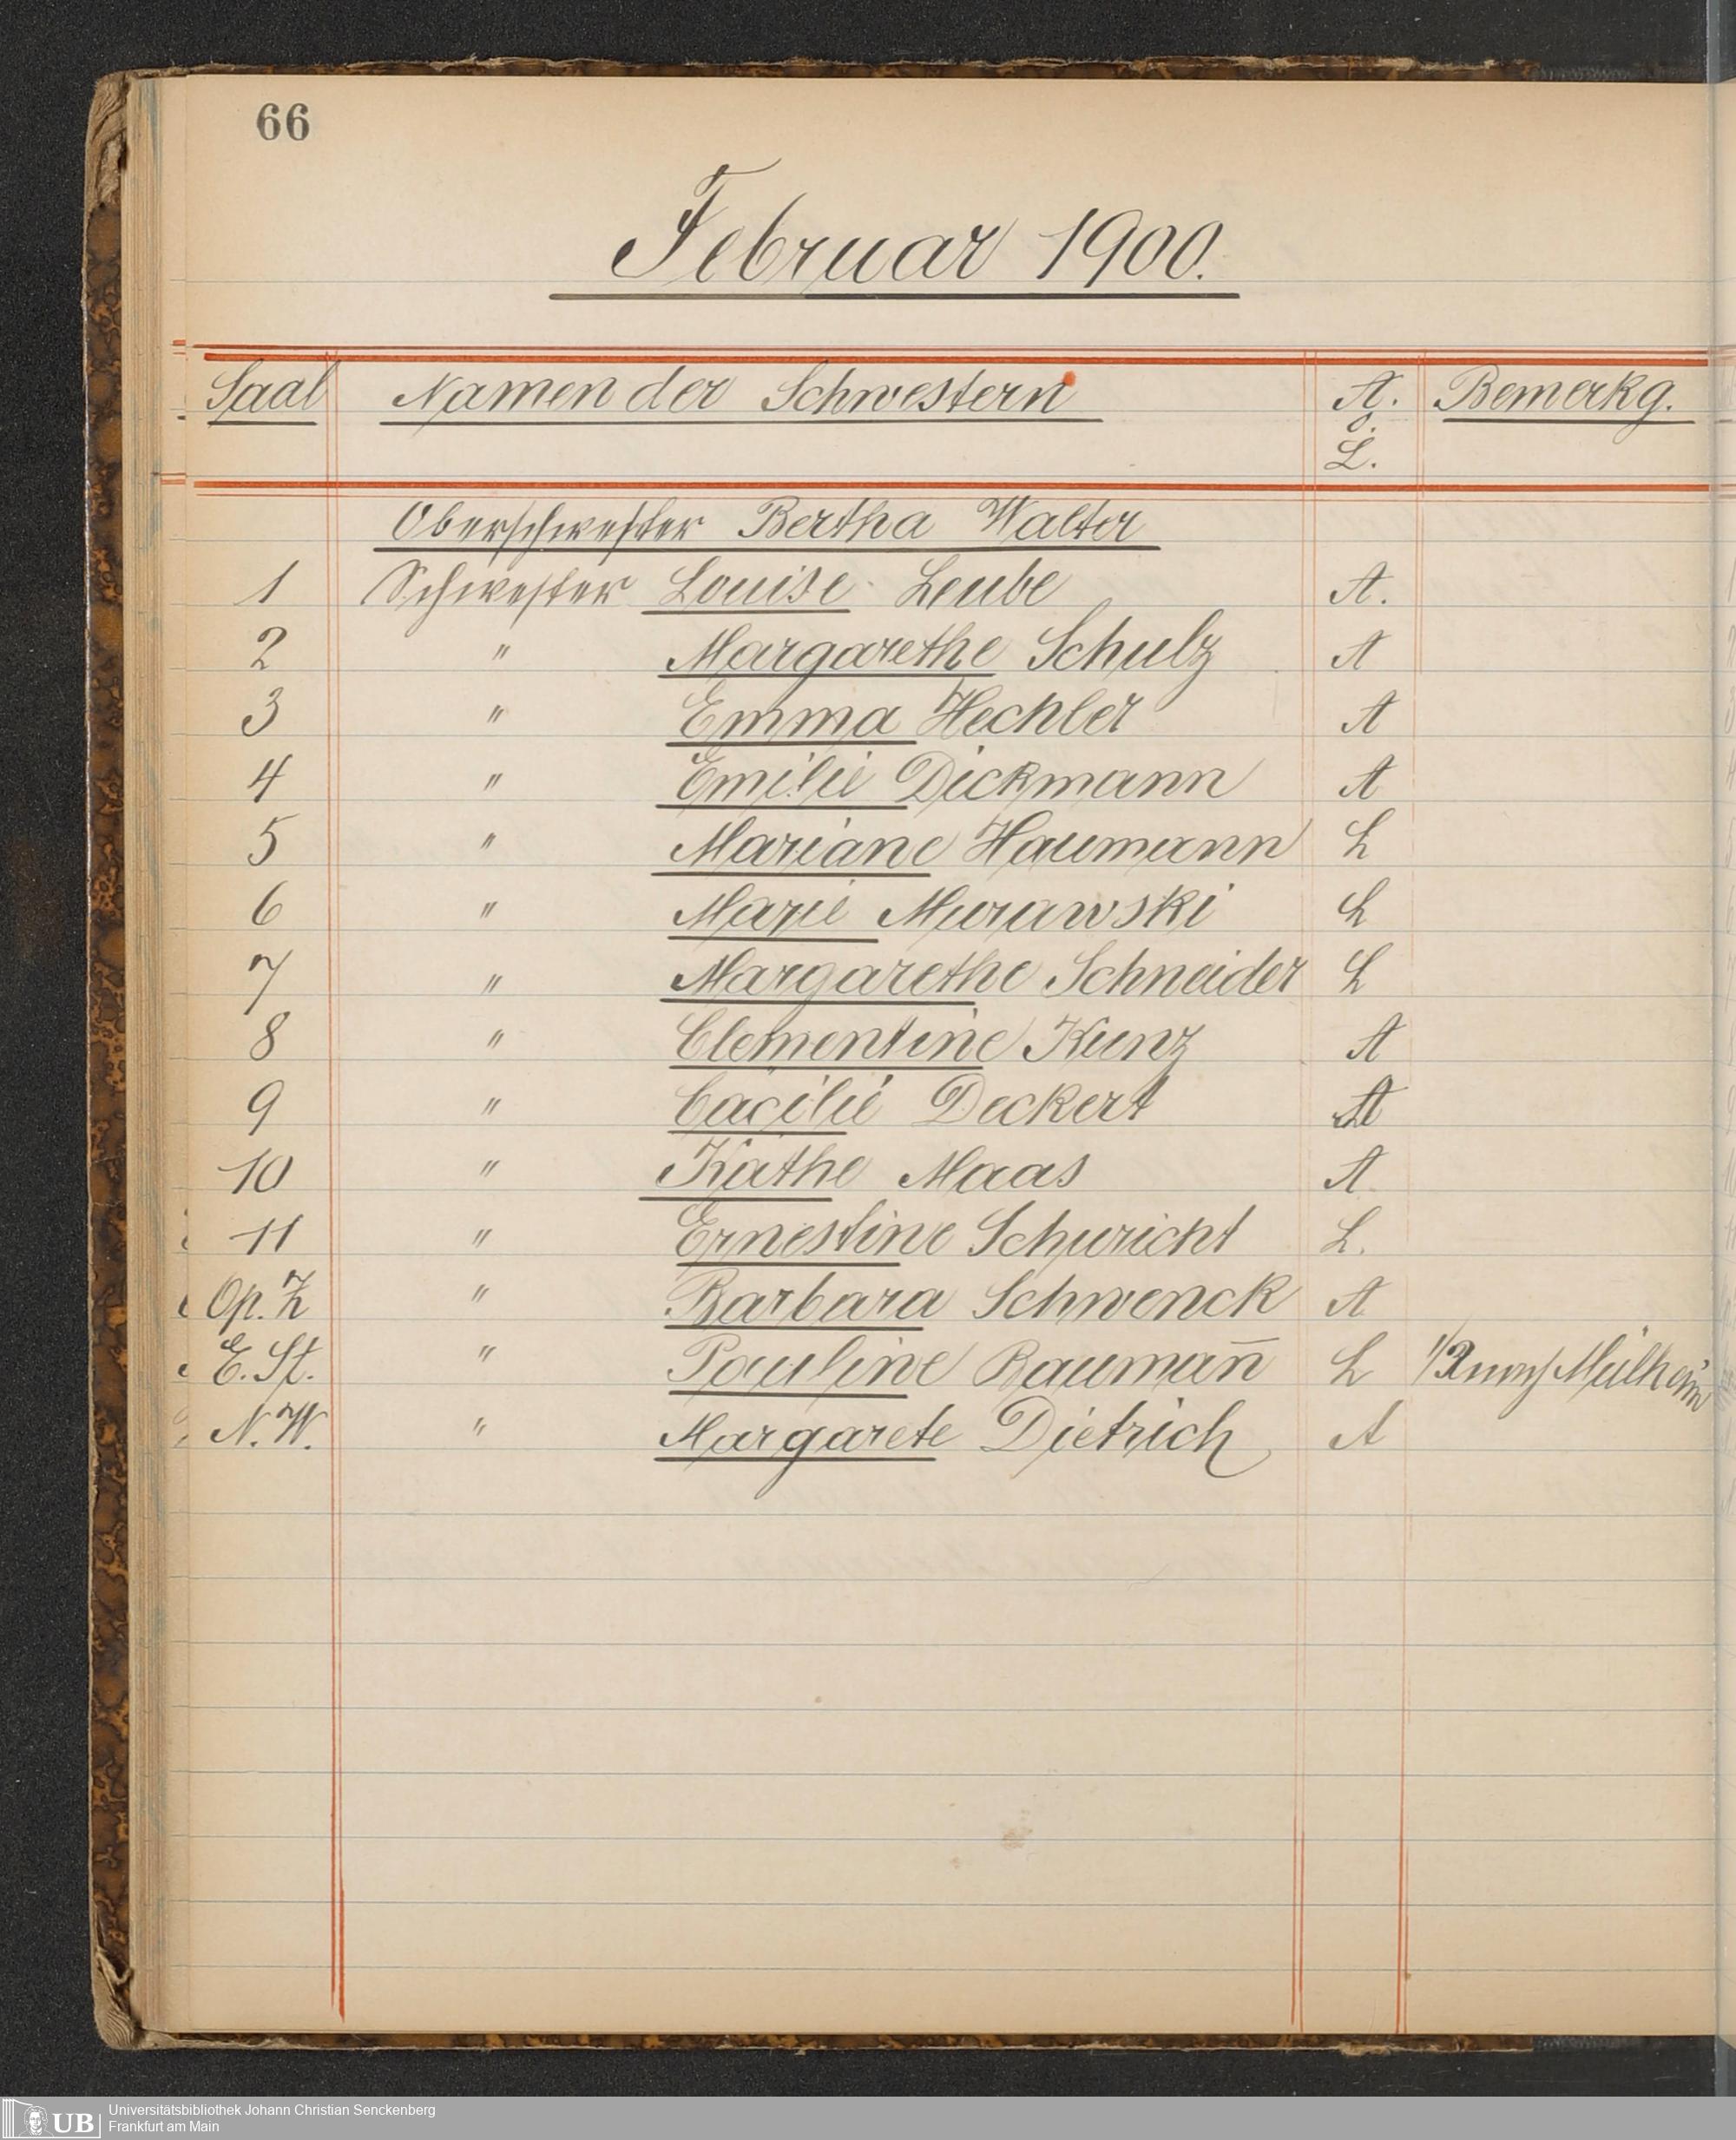 66
Februar 1900.
Saal Namen der Schwestern A. o. L. Bemerkg.
Oberschwester Bertha Walter
1 Schwester Louise Leube A.
2 " Margarethe Schulz A
3 " Emma Hechler A
4 " Emilie Dickmann A
5 " Mariane Haumann L
6 " Marie Murawski L
7 " Margarethe Schneider L
8 " Clementine Kunz A
9 " Cäcilie Deckert A
10 " Käthe Maas A
11 " Ernestine Schuricht L.
Op. Z " Barbara Schwenck A
E. St. " Pauline Baumañ L 1/2 nach Mülheim
N. W. " Margarete Dietrich A
UB Universitätsbibliothek Johann Christian Senckenberg
Frankfurt am Main